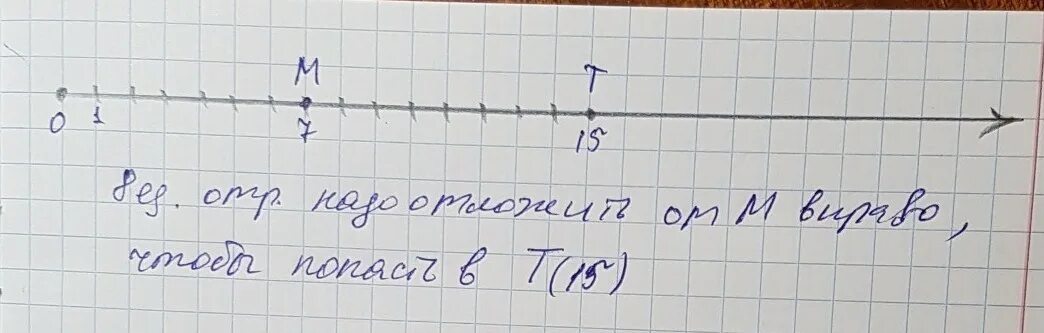 М Т
0 1 7 15
8 ед. отр. надо отложить от М вправо,
чтобы попасть в Т(15)